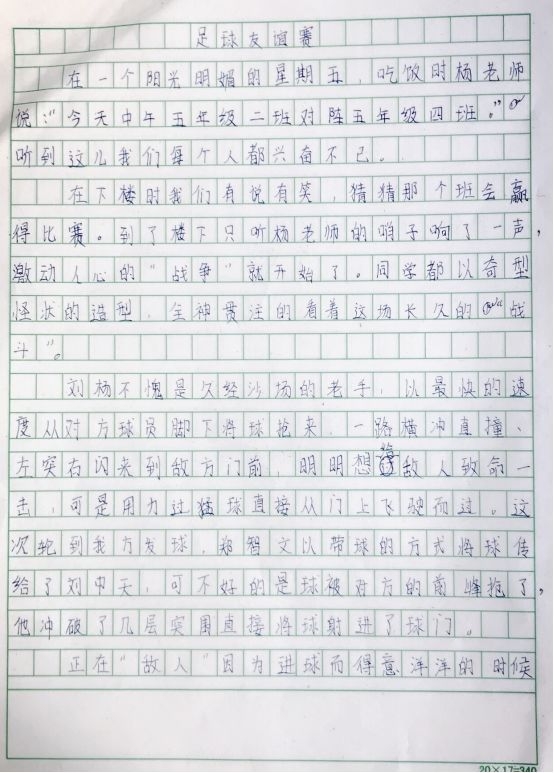 足球友谊赛
在一个阳光明媚的星期五，吃饭时杨老师
说：“今天中午五年级二班对阵五年级四班。”
听到这儿我们每个人都兴奋不已。
在下楼时我们有说有笑，猜猜那个班会赢
得比赛。到了楼下只听杨老师的哨子响了一声，
激动人心的“战争”就开始了。同学都以奇型
怪状的造型，全神贯注的看着这场长久的“战
斗”。
刘杨不愧是久经沙场的老手，以最快的速
度从对方球员脚下将球抢来，一路横冲直撞、
左突右闪来到敌方门前，明明想给敌人致命一
击，可是用力过猛球直接从门上飞驶而过。这
次轮到我方发球，郑智文以带球的方式将球传
给了刘中天，可不好的是球被对方的前峰抢了，
他冲破了几层突围直接将球射进了球门。
正在“敌人”因为进球而得意洋洋的时候
20×17=340